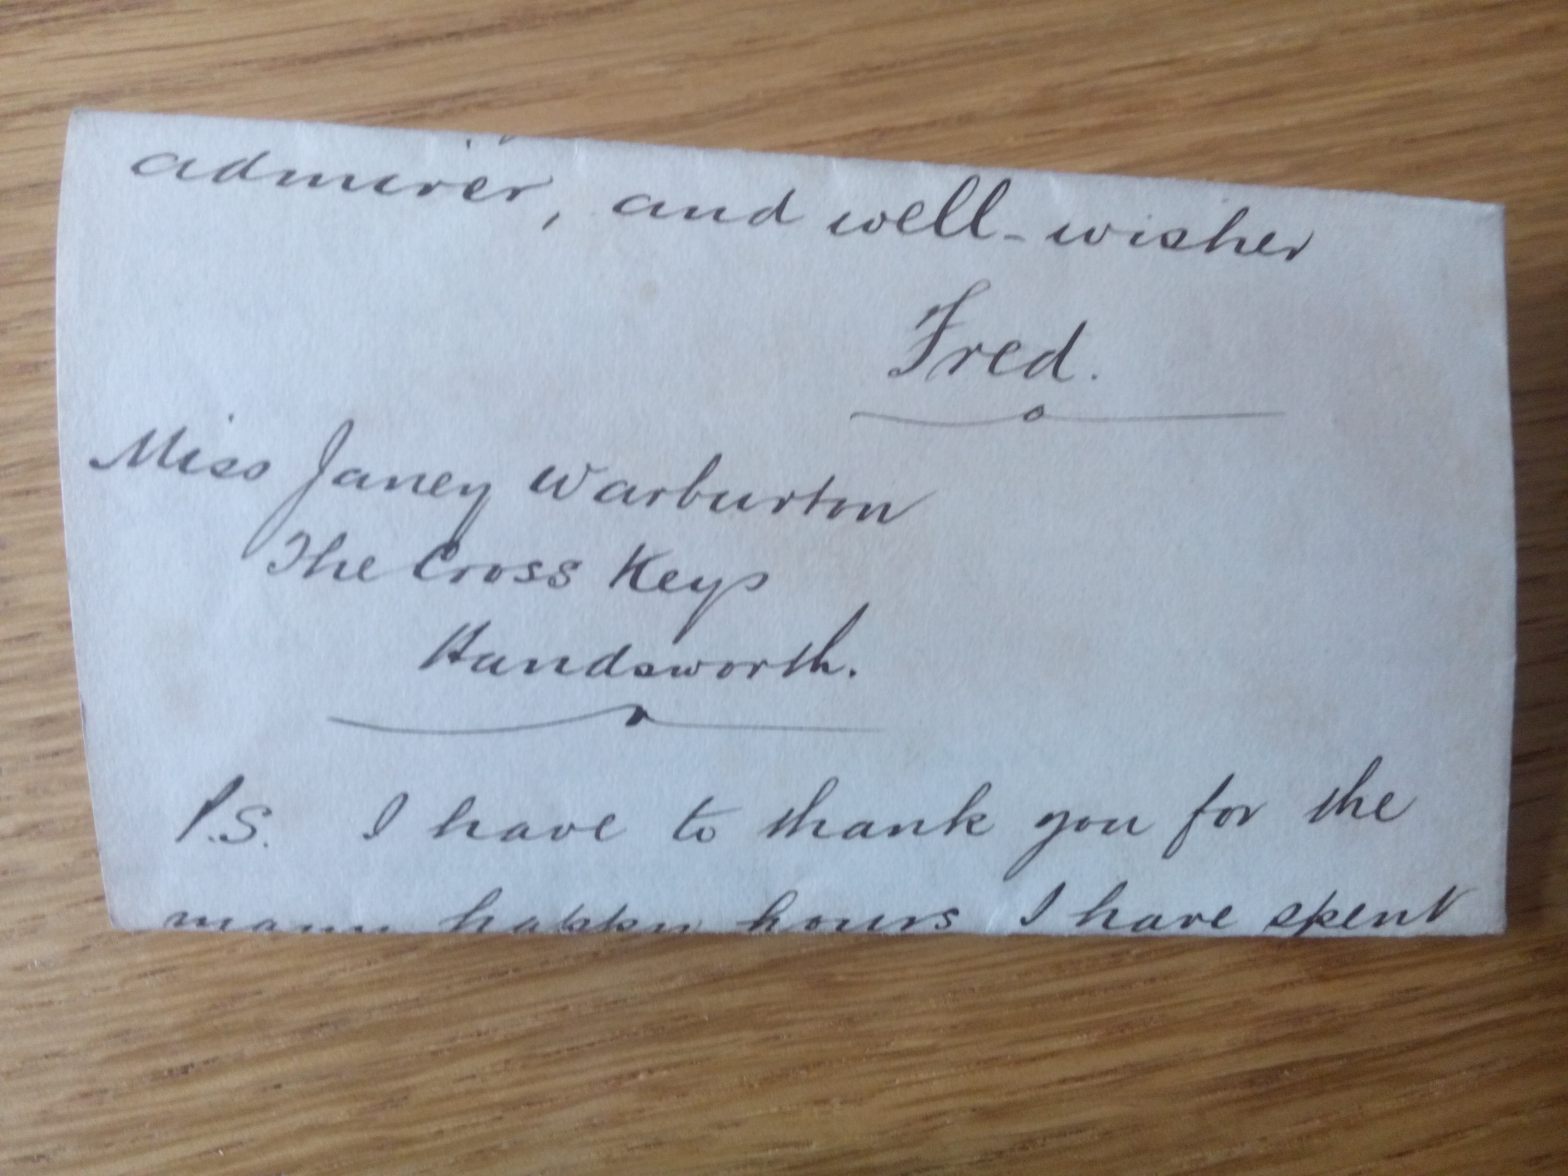 admirer, and well-wisher
Fred.
Miss Janey Warburton
The Cross Keys
Handsworth.
P.S. I have to thank you for the
many happy hours I have spent